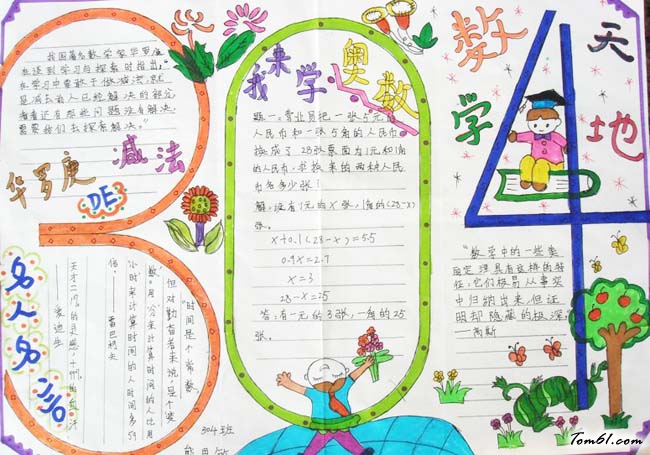 我国著名数学家华罗庚
在谈到学习与探索时指出:"
在学习中要敢于做减法,就
是减去前人已经解决的部分,
看看还有那些问题没有解决,
需要我们去探索解决。"
华罗庚
DE
减法
名人名言
天才=1%的灵感+99%的血汗
爱迪生
"时间是个常数,
但对勤奋者来说,是个'变
数'。用'分'来计算时间的人比用
'小时'来计算时间的人时间多59
倍。
雷巴柯夫
我来学奥数
题一:营业员把一张5元的
人民币和一张5角的人民币
换成了28张票面为1元和1角
的人民币,求换来的两种人民
币各多少张?
解:设有1元的x张,1角的(28-x)
张。
x+0.1(28-x)=5.5
0.9x=2.7
x=3
28-x=25
答:有一元的3张,一角的25
张。
304班
数学天地
"数学中的一些美
丽定理具有这样的特
性:它们极易从事实
中归纳出来,但证
明却隐藏的极深"
——高斯
Tom61.com